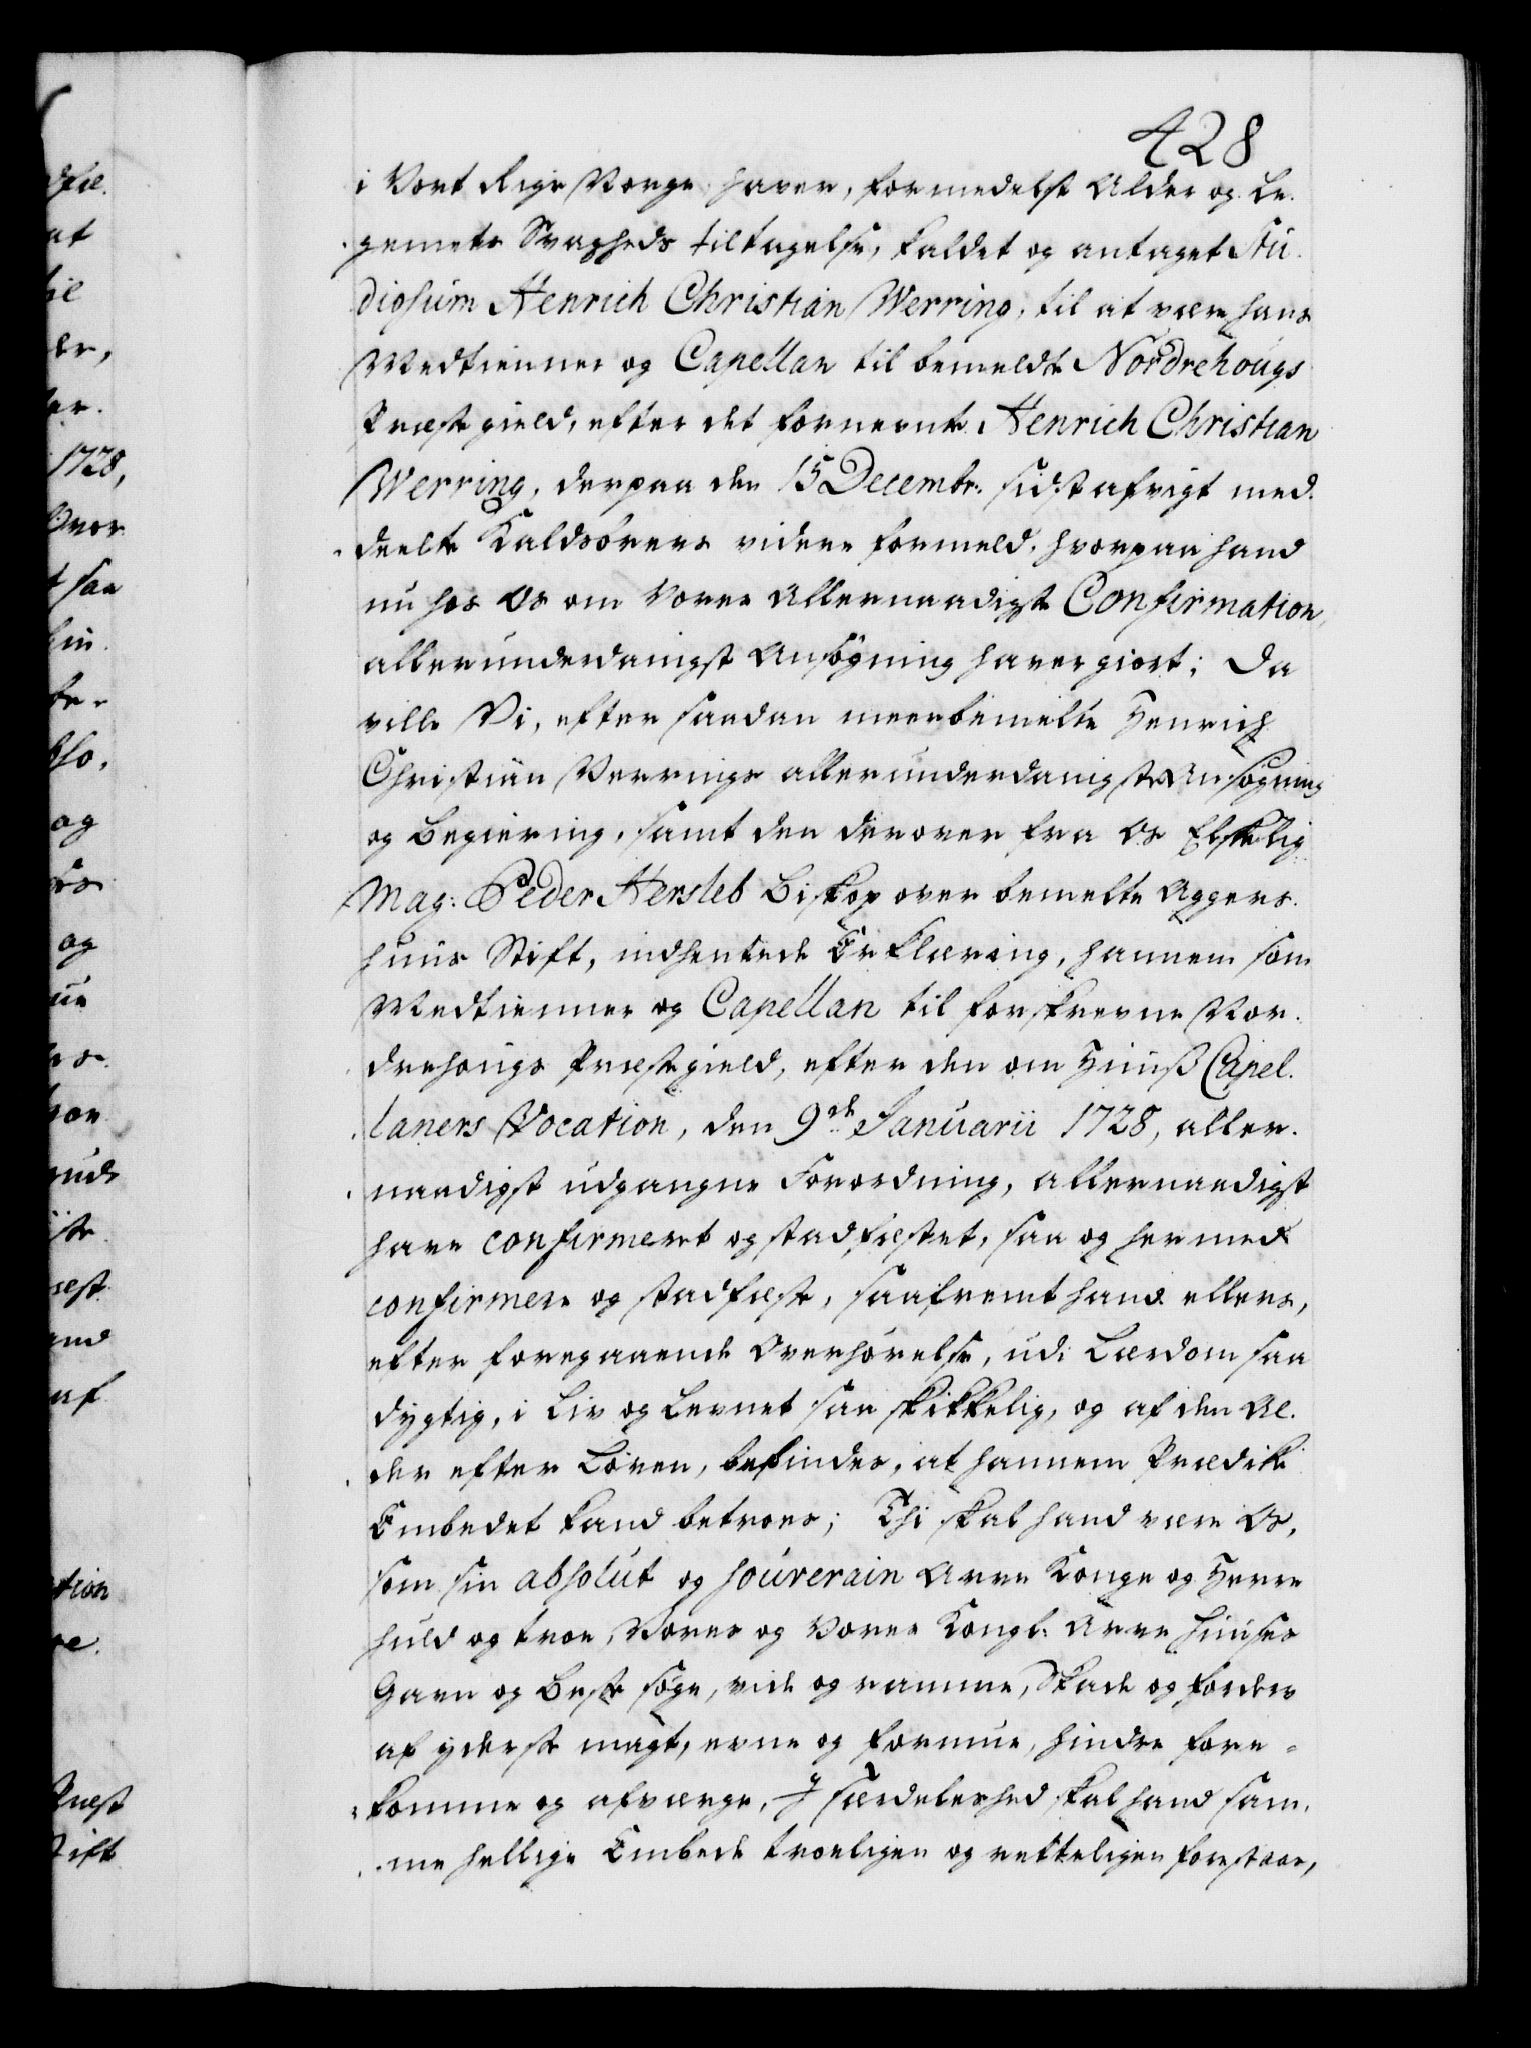 428
i Vort Rige Norge haver, formedelst Alder og Le-
gemets Svagheds tiltagelse, kaldet og antaget Stu-
diosum Henrich Christian Werring, til at være hans
Medtienner og Capellan til bemeldte Nordrehougs
Præstegield, efter det fornevnte Henrich Christian
Werring, derpaa den 15 Decembr. sidstafvigt med-
deelte Kaldsbrevs videre formeld, hvorpaa hand
nu hos Os om Vores Allernaadigste Confirmation,
allerunderdanigst Ansøgning haver giort; Da
ville Vi, efter saadan meerbemelte Henrich
Christian Verrings allerunderdanigste Ansøgning
og Begiering, samt den derover fra Os Elskelig
Mag: Peder Hersleb Biskop over bemelte Aggers-
huus Stift, indhentede Erklæring, hannem som
Medtienner og Capellan til forskrevne Nor-
drehougs Præstegield, efter den om Huus Capel-
laners Vocation, den 9de Januarii 1728, aller-
naadigst udgangne Forordning, allernaadigst
have confirmeret og stadfæstet, saa og hermed
confirmere og stadfæste, saafremt hand ellers,
efter foregaaende Overhørelse, udi Lærdom saa
dygtig, i Liv og Levnet saa skikkelig, og af den Al-
der efter Loven, befindes, at hannem Prædike
Embedet kand betroes; Thi skal hand være Os,
som sin absolut og souverain Arve Konge og Herre
huld og troe, Vores og Vores Kongl: Arve Huuses
Gavn og Beste søge, vide og ramme, Skade og Forderv
af yderste magt, evne og formue, hindre fore-
komme og afværge, J særdeleshed skal hand sam-
me hellige Embede troeligen og retteligen forestaae,